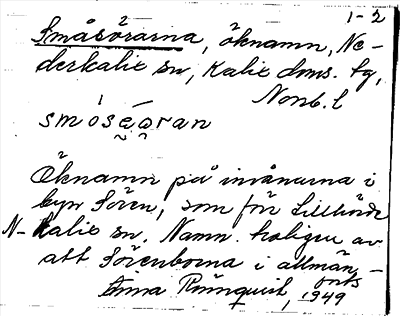 1-2
Småsörarna, öknamn, Ne-
derkalix sn, Kalix doms. tg,
Norrb. l
smósə̀aran
Öknamn på invånarna i
byn Sören, som för tillhörde
N-Kalix sn. Namn. troligen av
att Sörenborna i allmän-
Anna Rönnquist, 1949